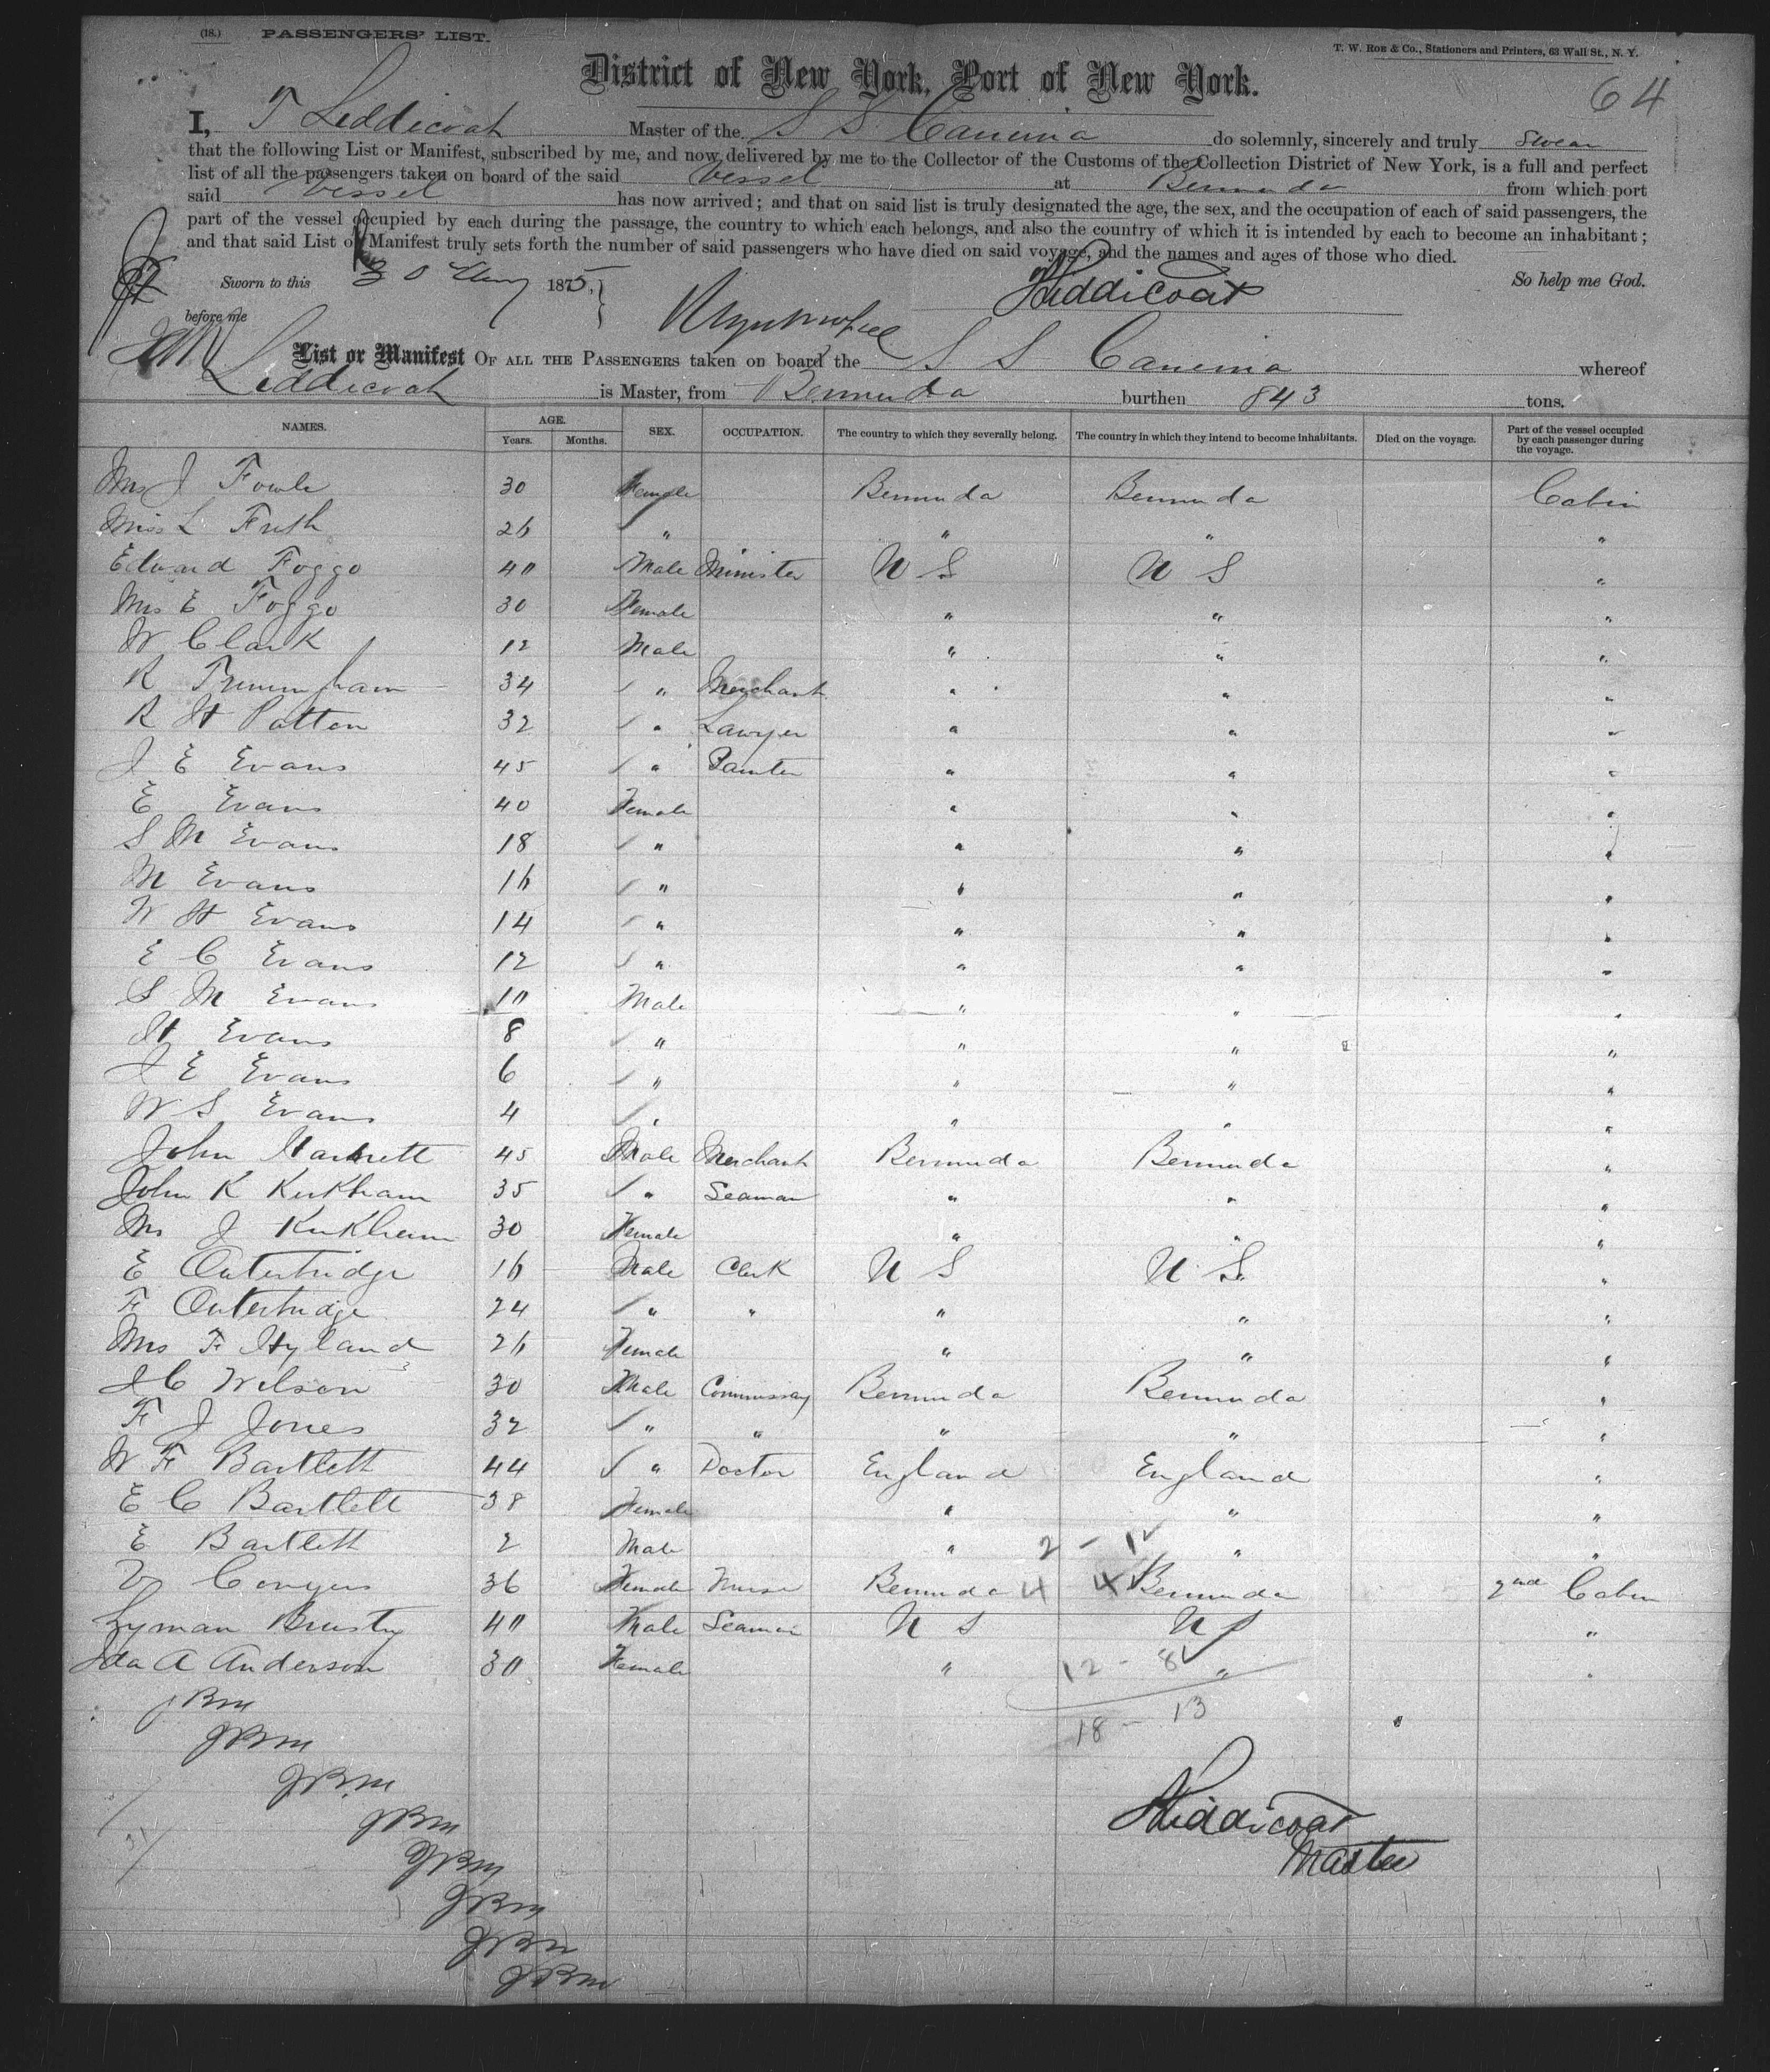 (18.) PASSENGERS' LIST.
T. W. Roe & Co., Stationers and Printers, 63 Wall St., N. Y.
District of New York, Port of New York.
64
I, T Liddicoat Master of the S S Canima do solemnly, sincerely and truly swear
that the following List or Manifest, subscribed by me, and now delivered by me to the Collector of the Customs of the Collection District of New York, is a full and perfect
list of all the passengers taken on board of the said Vessel at Bermuda from which port
said Vessel has now arrived; and that on said list is truly designated the age, the sex, and the occupation of each of said passengers, the
part of the vessel occupied by each during the passage, the country to which each belongs, and also the country of which it is intended by each to become an inhabitant;
and that said List or Manifest truly sets forth the number of said passengers who have died on said voyage, and the names and ages of those who died.
Sworn to this 30 1875, Liddicoat So help me God.
before me
List or Manifest OF ALL THE PASSENGERS taken on board the S S Canima whereof
Liddicoat is Master, from Bermuda burthen 843 tons.
NAMES. AGE. Years. Months. SEX. OCCUPATION. The country to which they severally belong. The country in which they intend to become inhabitants. Died on the voyage. Part of the vessel occupied by each passenger during the voyage.
Mrs J Fowle 30 Female Bermuda Bermuda Cabin
Miss L Frith 26 " " " "
Edward Foggo 40 Male Minister U S U S "
Mrs E Foggo 30 Female " " "
W Clark 12 Male " " "
R Trimingham 34 " Merchant " " "
R H Patton 32 " Lawyer " " "
J E Evans 45 " Painter " " "
E Evans 40 Female " " "
S M Evans 18 " " " "
M Evans 16 " " " "
W H Evans 14 " " " "
E C Evans 12 " " " "
S M Evans 10 Male " " "
H Evans 8 " " " "
J E Evans 6 " " " "
W S Evans 4 " " " "
John Harnett 45 Male Merchant Bermuda Bermuda "
John K Kirkham 35 " Seaman " " "
Mrs J Kirkham 30 Female " " "
E Outerbridge 16 Male Clerk U S U S "
F Outerbridge 24 " " " " "
Mrs F Hyland 26 Female " " "
J C Wilson 30 Male Commissary Bermuda Bermuda "
F J Jones 32 " " " " "
W F Bartlett 44 " Doctor England England "
E C Bartlett 38 Female " " "
E Bartlett 2 Male " " "
2 - 12
Conyers 36 Female Nurse Bermuda 4 4 Bermuda 2nd Cabin
Lyman 40 Male Seaman U S U S "
Ida A Anderson 30 Female " " "
12 - 8
18 - 13
JBM
JBM
JBM
JBM
JBM
JBM
JBM
JBM
Liddicoat
Master